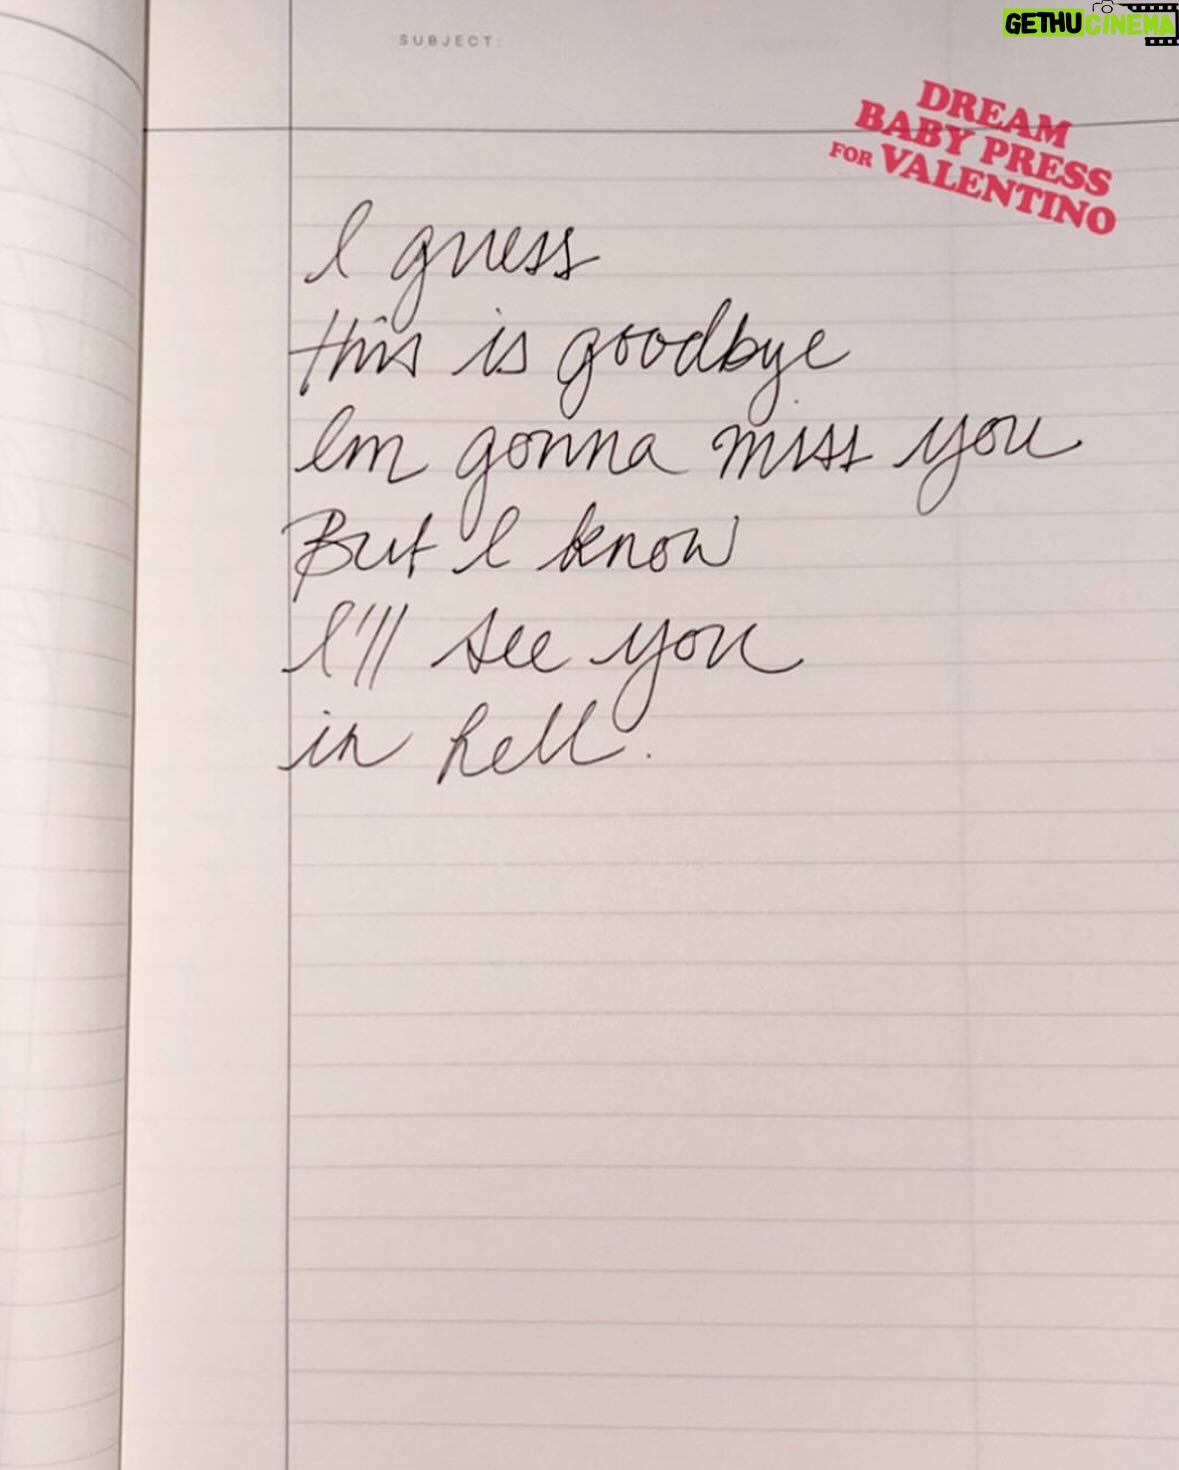 GETHUCINEMA
SUBJECT:
DREAM
BABY PRESS
FOR VALENTINO
I guess
this is goodbye
Im gonna miss you
But I know
I'll see you
in hell.